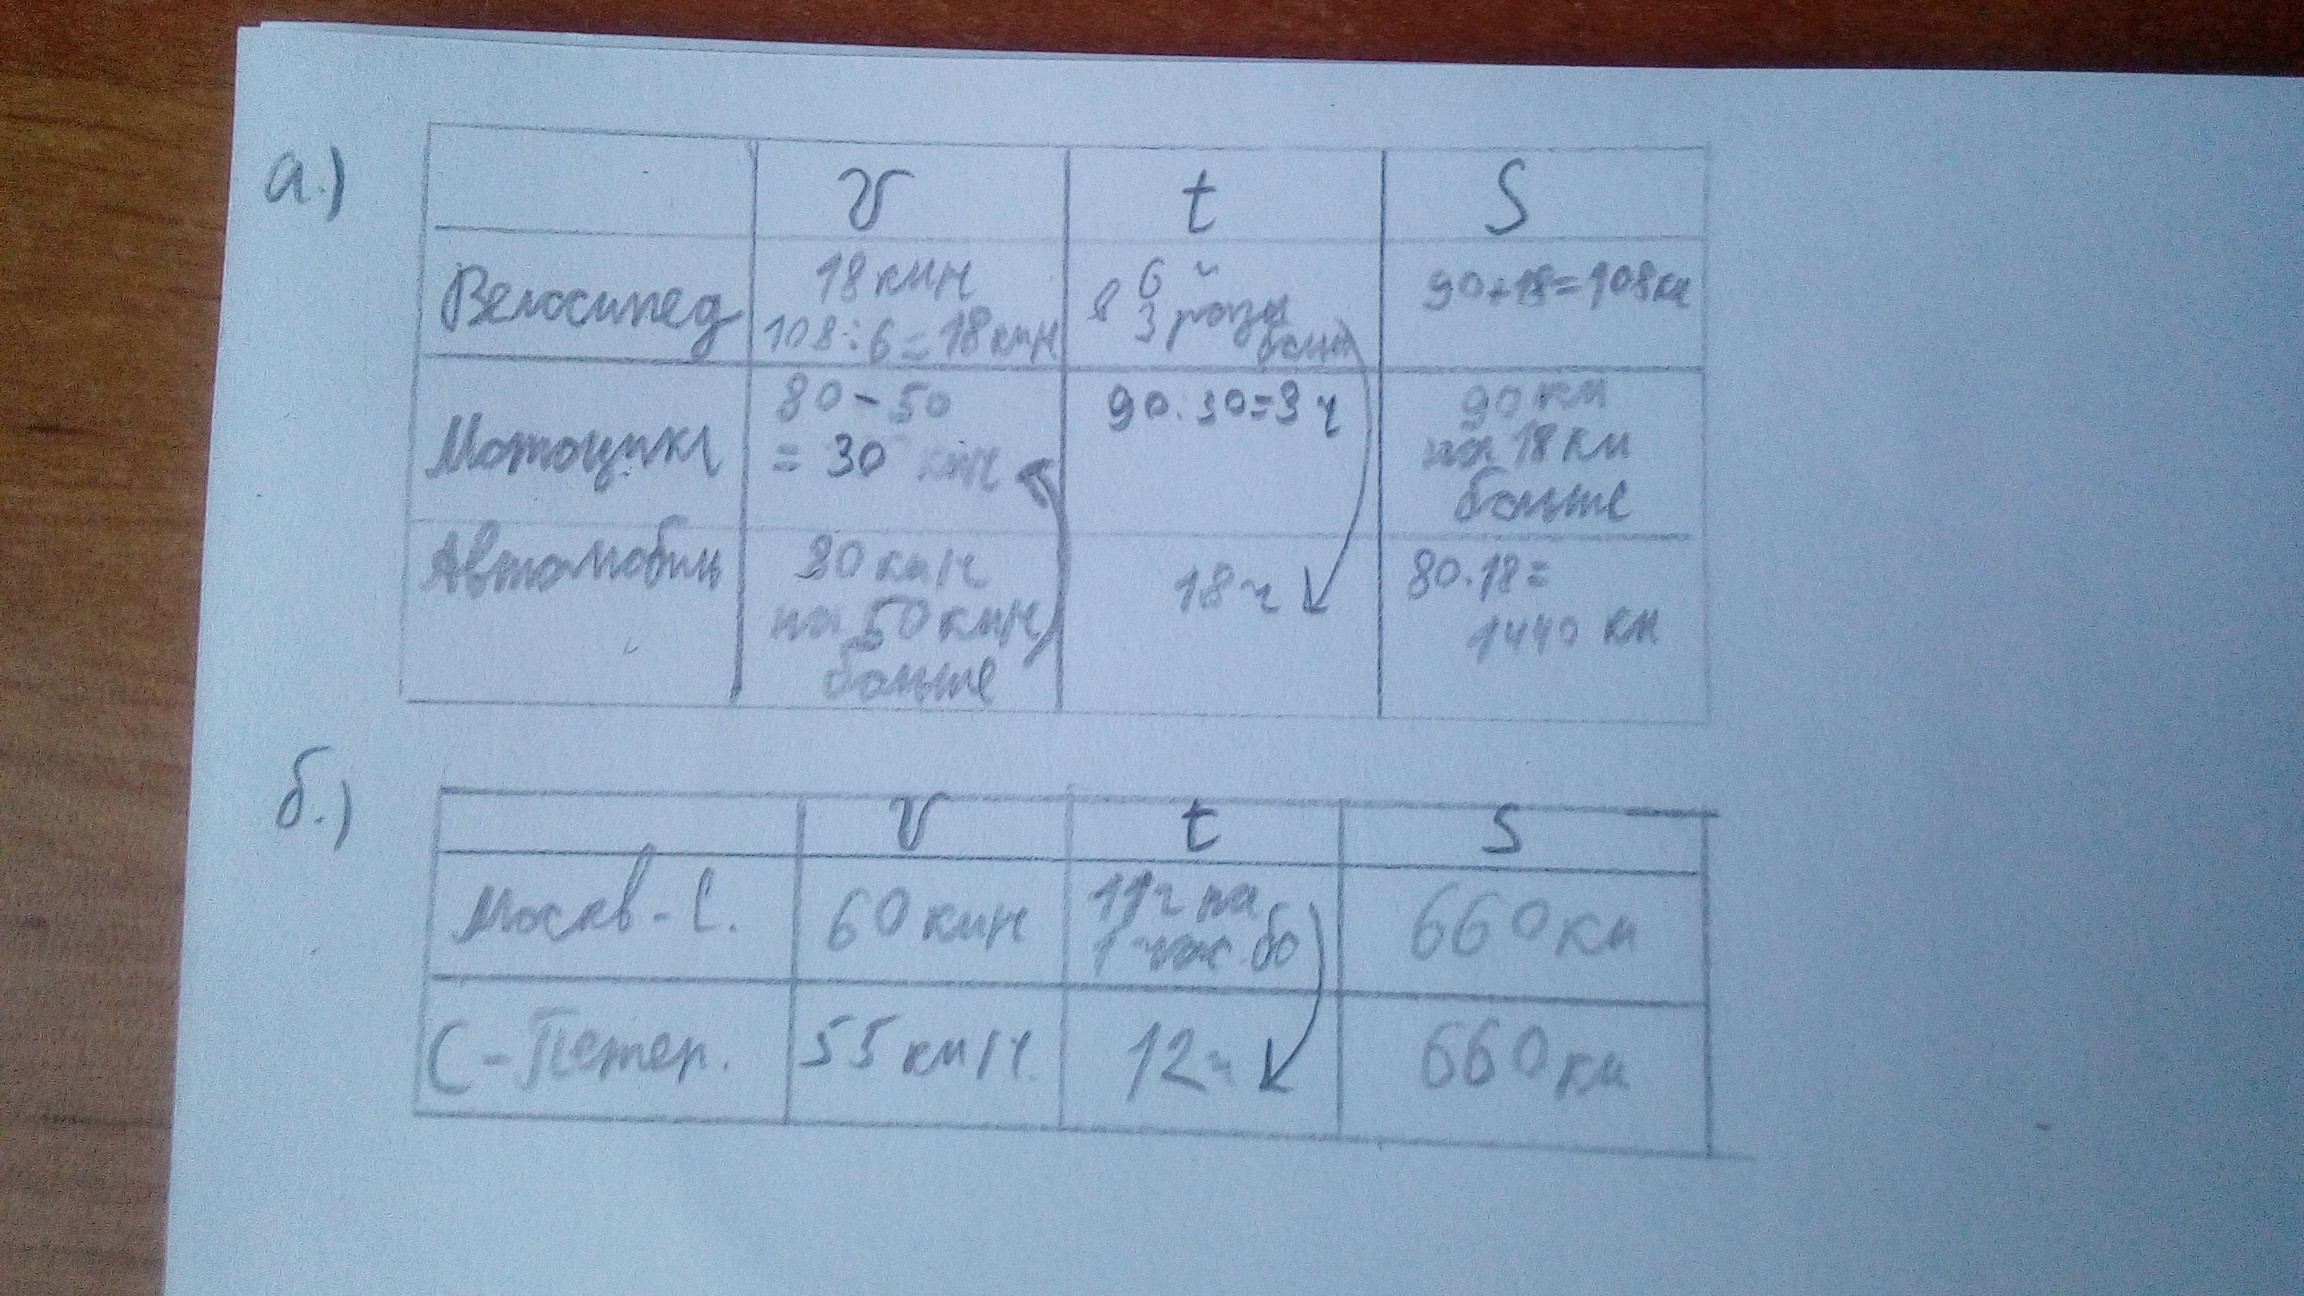 а.)
v t S
Велосипед
18 км/ч
108:6=18 км/ч
6 ч
в 3 раза
больш
90+18=108 км
Мотоцикл
80-50
=30 км/ч
90:30=3 ч
90 км
на 18 км
больше
Автомобиль
80 км/ч
на 50 км/ч
больше
18 ч
80.18=
1440 км
б.)
v t S
Москв-С.
60 км/ч
11ч на
1 час. бо
660 км
С-Петер.
55 км/ч.
12ч
660 км